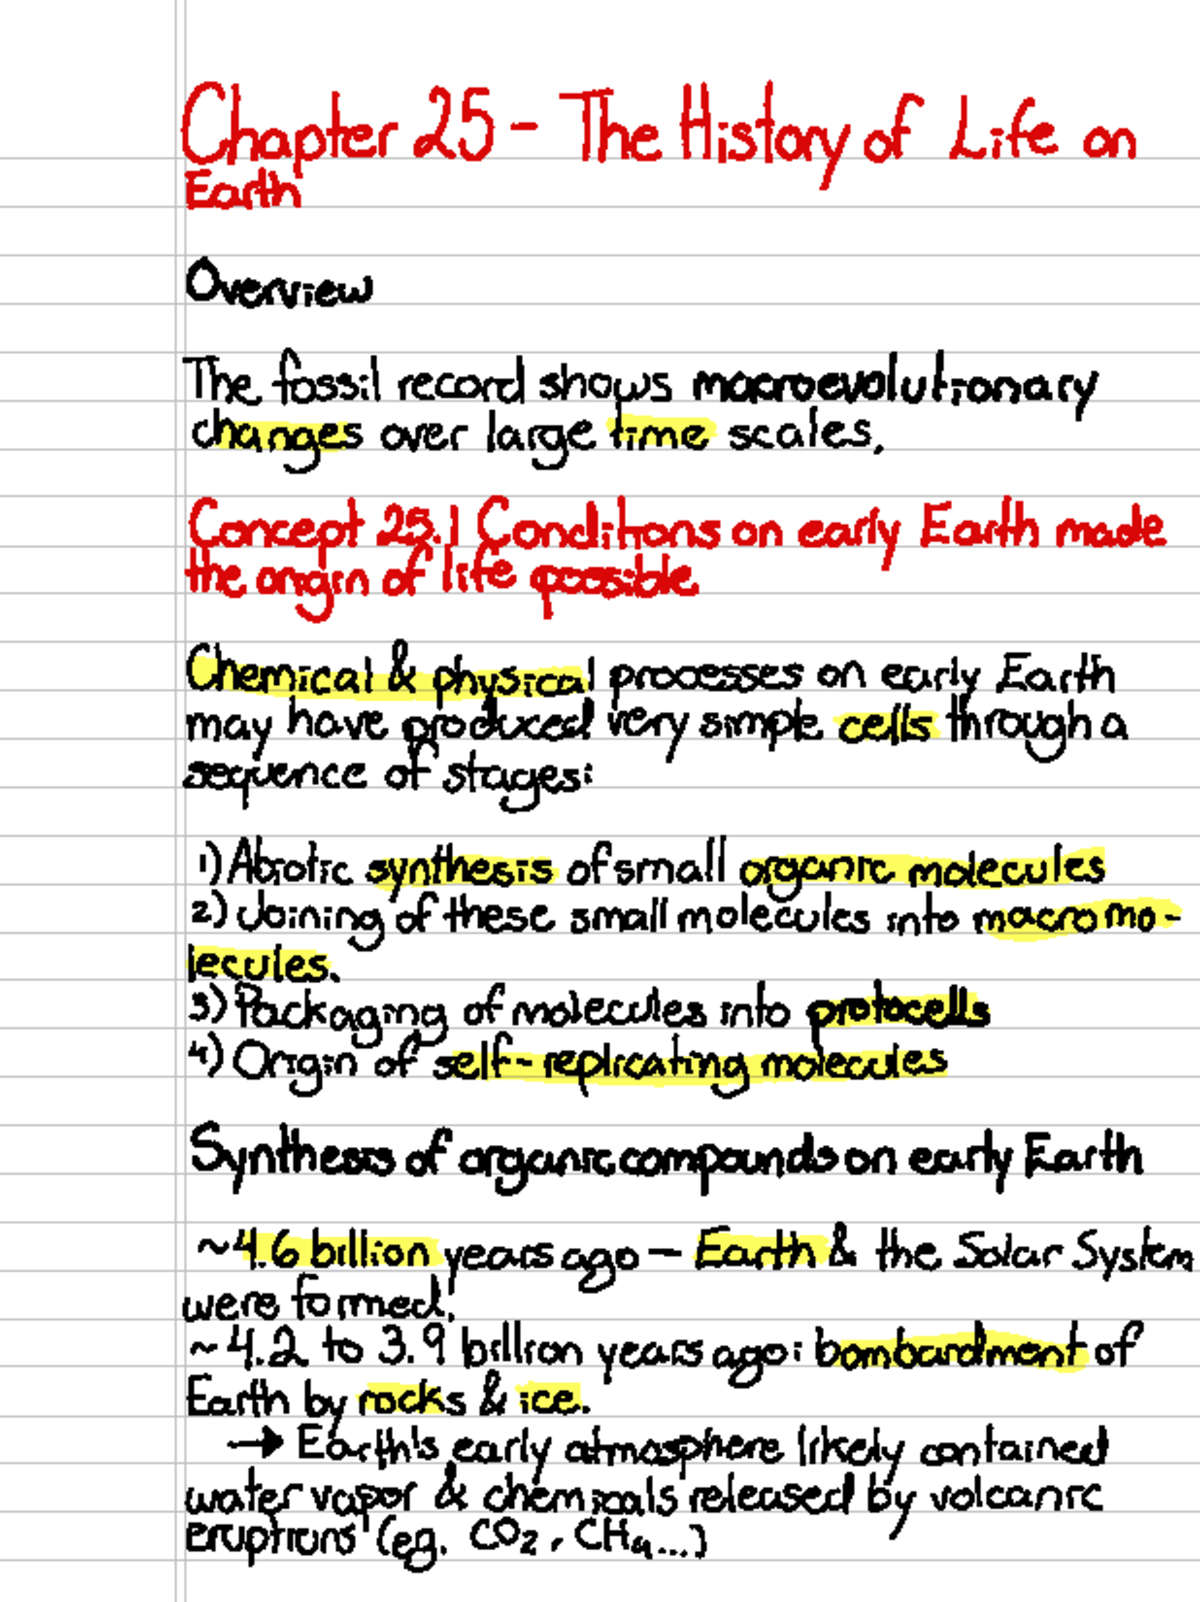 Chapter 25 - The History of Life on
Earth
Overview
The fossil record shows macroevolutionary
changes over large time scales.
Concept 25.1 Conditions on early Earth made
the origin of life possible
Chemical & physical processes on early Earth
may have produced very simple cells through a
sequence of stages:
1) Abiotic synthesis of small organic molecules
2) Joining of these small molecules into macromo-
lecules.
3) Packaging of molecules into protocells
4) Origin of self-replicating molecules
Synthesis of organic compounds on early Earth
~4.6 billion years ago - Earth & the Solar System
were formed!
~4.2 to 3.9 billion years ago: bombardment of
Earth by rocks & ice.
→ Earth's early atmosphere likely contained
water vapor & chemicals released by volcanic
eruptions (eg. CO₂, CH₄...)